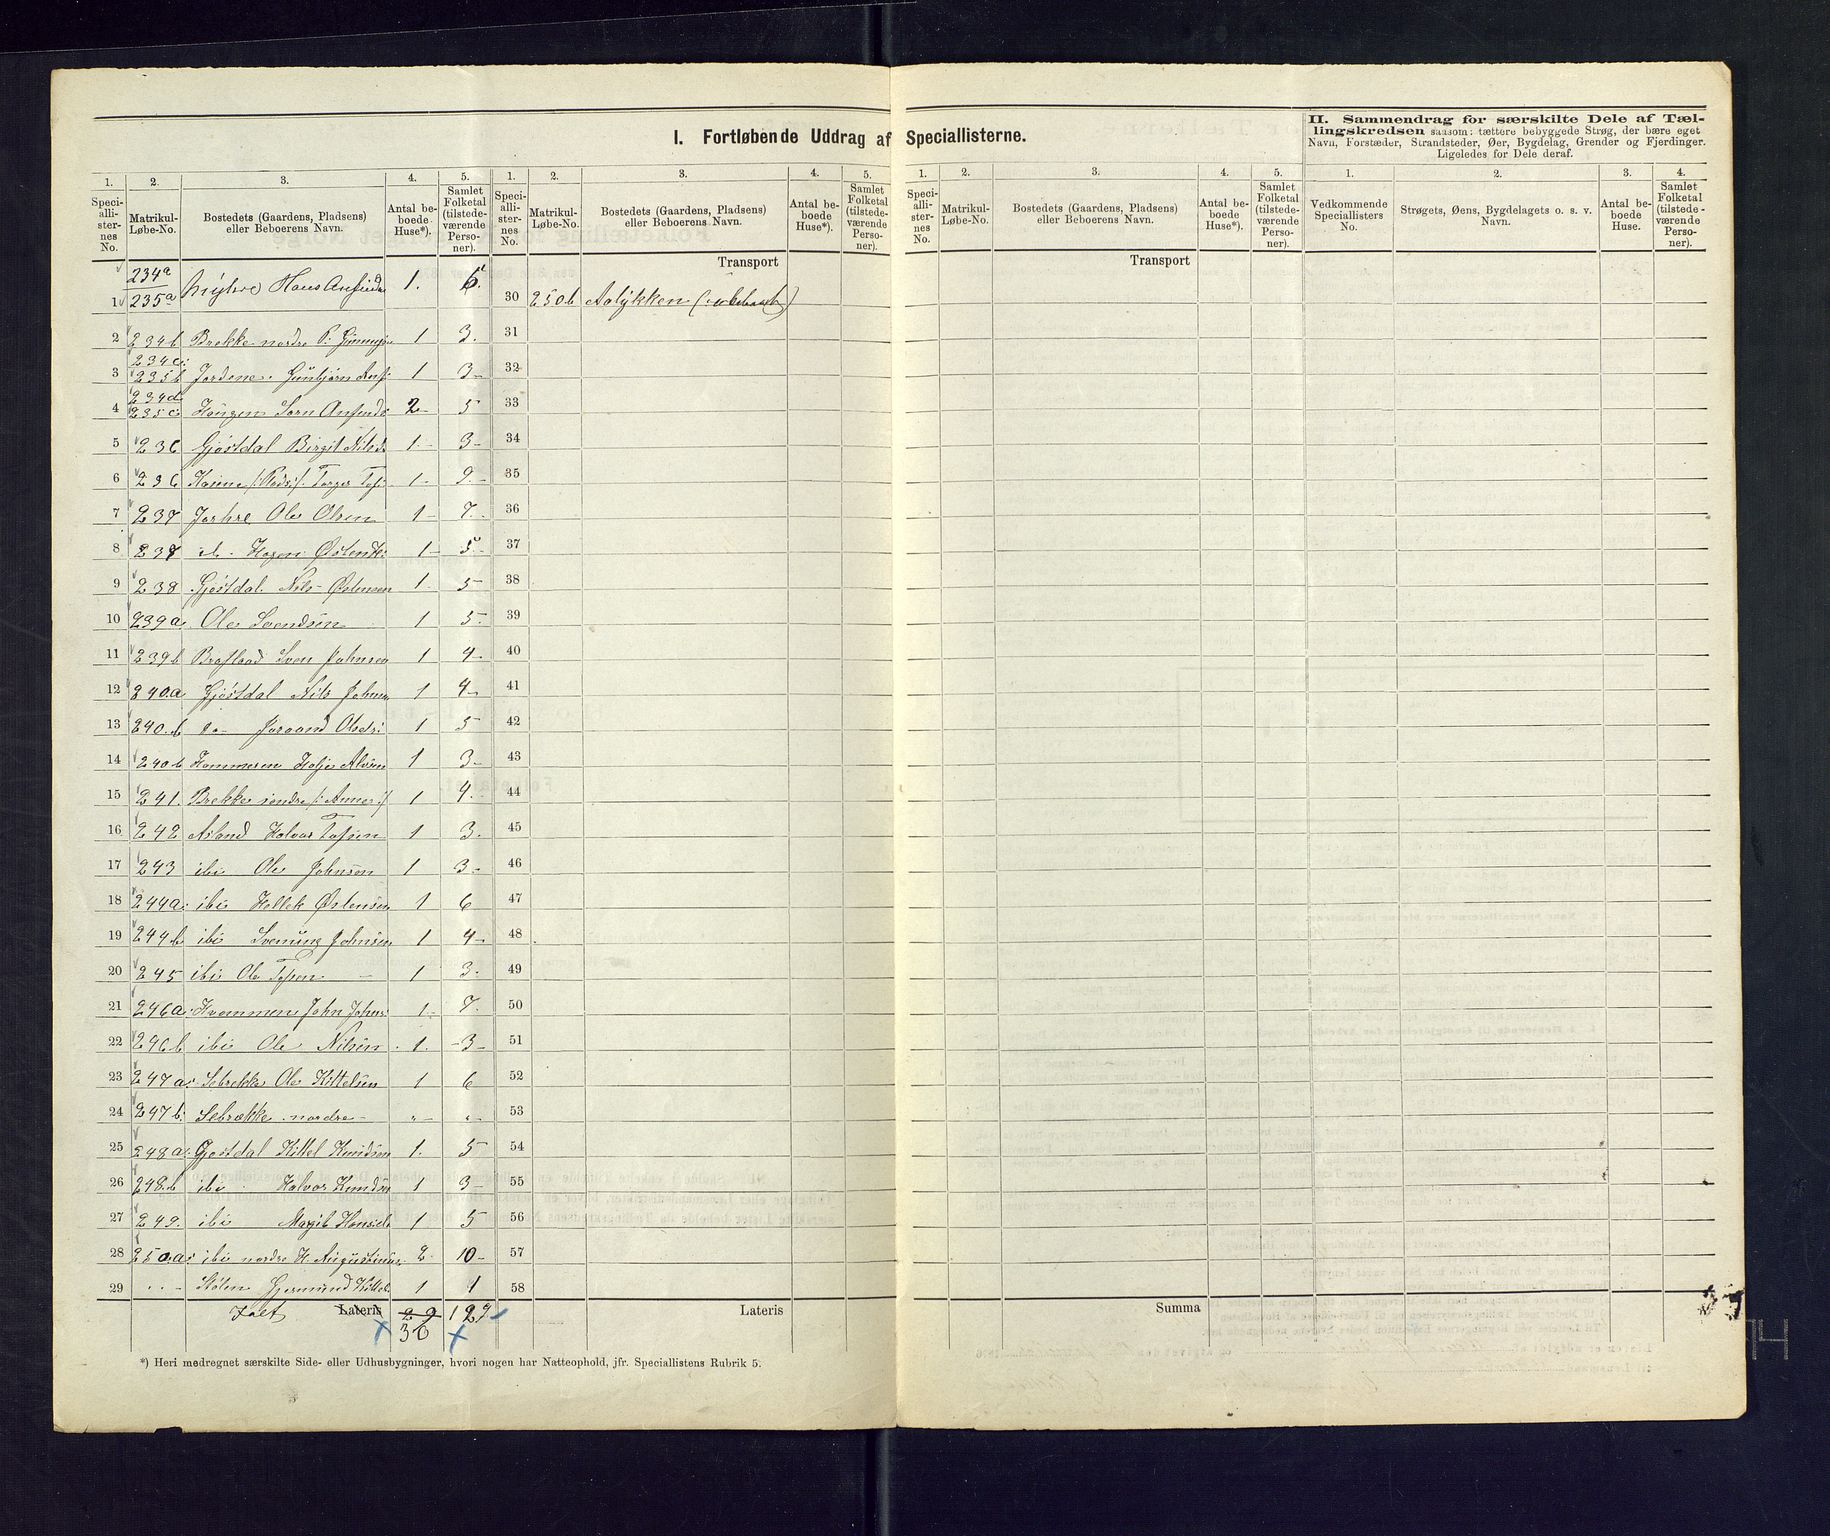 I. Fortløbende Uddrag af Speciallisterne.
II. Sammendrag for særskilte Dele af Tæl-
lingskredsen saasom: tættere bebyggede Strøg, der bære eget
Navn, Forstæder, Strandsteder, Øer, Bygdelag, Grender og Fjerdinger.
Ligeledes for Dele deraf.
1. 2. 3. 4. 5. 1. 2. 3. 4. 5. 1. 2. 3. 4. 5. 1. 2. 3. 4.
Speciallisternes No. Matrikul-Løbe-No. Bostedets (Gaardens, Pladsens) eller Beboerens Navn. Antal beboede Huse*). Samlet Folketal (tilstedeværende Personer).
Speciallisternes No. Matrikul-Løbe-No. Bostedets (Gaardens, Pladsens) eller Beboerens Navn. Antal beboede Huse*). Samlet Folketal (tilstedeværende Personer).
Speciallisternes No. Matrikul-Løbe-No. Bostedets (Gaardens, Pladsens) eller Beboerens Navn. Antal beboede Huse*). Samlet Folketal (tilstedeværende Personer).
Vedkommende Speciallisters No. Strøgets, Øens, Bygdelagets o. s. v. Navn. Antal beboede Huse. Samlet Folketal (tilstedeværende Personer).
Transport Transport
1 234a 235a Hans 1. 6. 30 250b Aalykken (: ubeboet)
2 234b Brekke nordre 1 3. 31
3 234c 235b Jordene Gunbjørn 1 3- 32
4 234d 235c Haugen 2- 5 33
5 236 Gjøstdal Birgit Nilsd. 1- 3- 34
6 236 /: Plads :/ 1- 9.- 35
7 237 Ole Olsen 1- 7.- 36
8 237 Hagen Østen 1- 5.- 37
9 238 Gjøstdal Nils Østensen 1. 5 38
10 239a. Ole Svendsen 1 5. 39
11 239b Sven Johnsen 1 4- 40
12 240.a Gjøstdal Nils Johnsen 1 4- 41
13 240.b do- Joraand Olsdr. 1 5 42
14 240b Hammeren 1 3.- 43
15 241. Brekke søndre 1 4.- 44
16 242 Asland Halvor Tofsen 1 3. 45
17 243 ibi Ole Johnsen 1 3- 46
18 244a. ibi Hellek Østensen 1 6 47
19 244b ibi Svenung Johnsen 1 4- 48
20 245 ibi Ole Tofsen - 1 3. 49
21 246a. Hvammen John Johns. 1- 7. 50
22 246b ibi Ole Nilsen 1. -3- 51
23 247a. Sebrekke Ole Kittelsen 1 6 52
24 247b. Sebrække nordre - „- „- 53
25 248a. Gjøstdal Kittel Knudsen 1. 5 54
26 248.b ibi Halvor Knudsen 1 3- 55
27 249. ibi Margit 1 5 56
28 250.a. ibi nordre H. Augustinus. 2- 10- 57
29 „ - Stølen Gjermund Kittels. 1 1 58
Ialt Lateris 29 127 Lateris Summa
30
*) Heri medregnet særskilte Side- eller Udhusbygninger, hvori nogen har Natteophold, jfr. Speciallistens Rubrik 5.